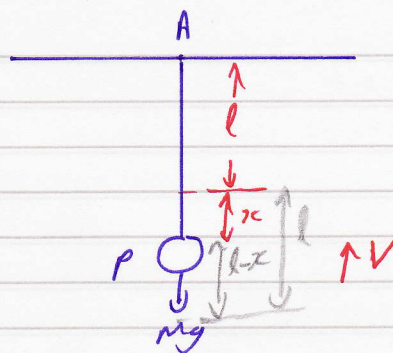 A
l
x
l
l-x
P
V
Mg